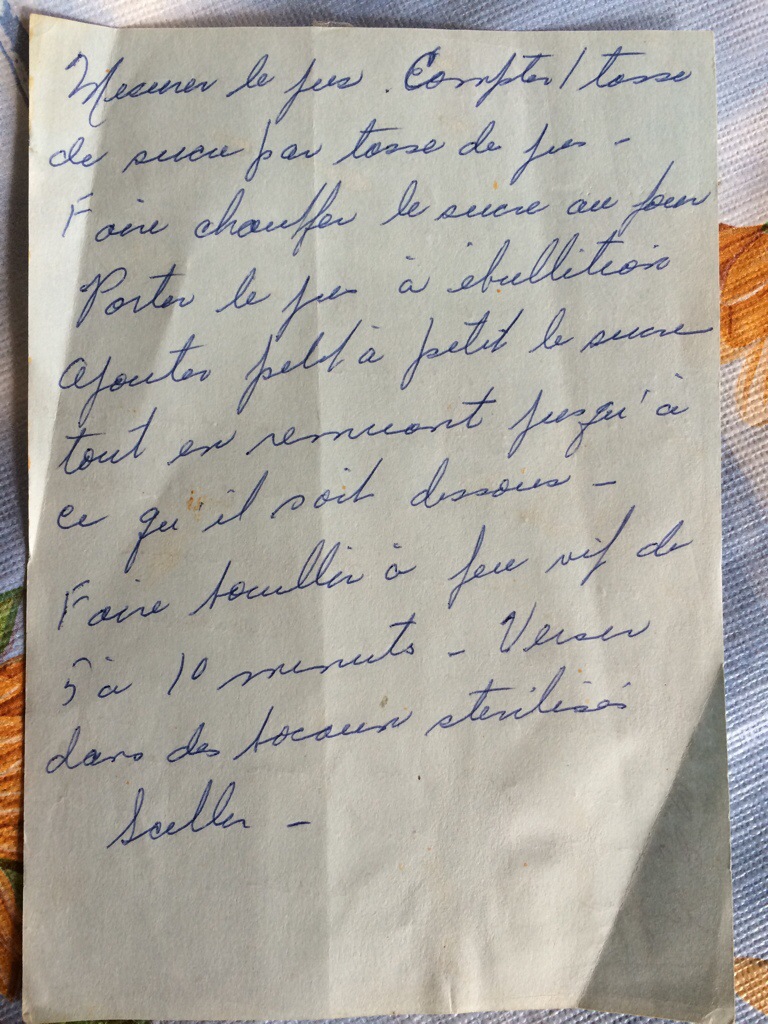 Mesurer le jus. Compter 1 tasse
de sucre par tasse de jus -
Faire chauffer le sucre au four
Porter le jus à ébullition
Ajouter petit à petit le sucre
tout en remuant jusqu'à
ce qu'il soit dissous -
Faire bouillir à feu vif de
5 à 10 minuts - Verser
dans des bocaux stérilisés
Sceller -